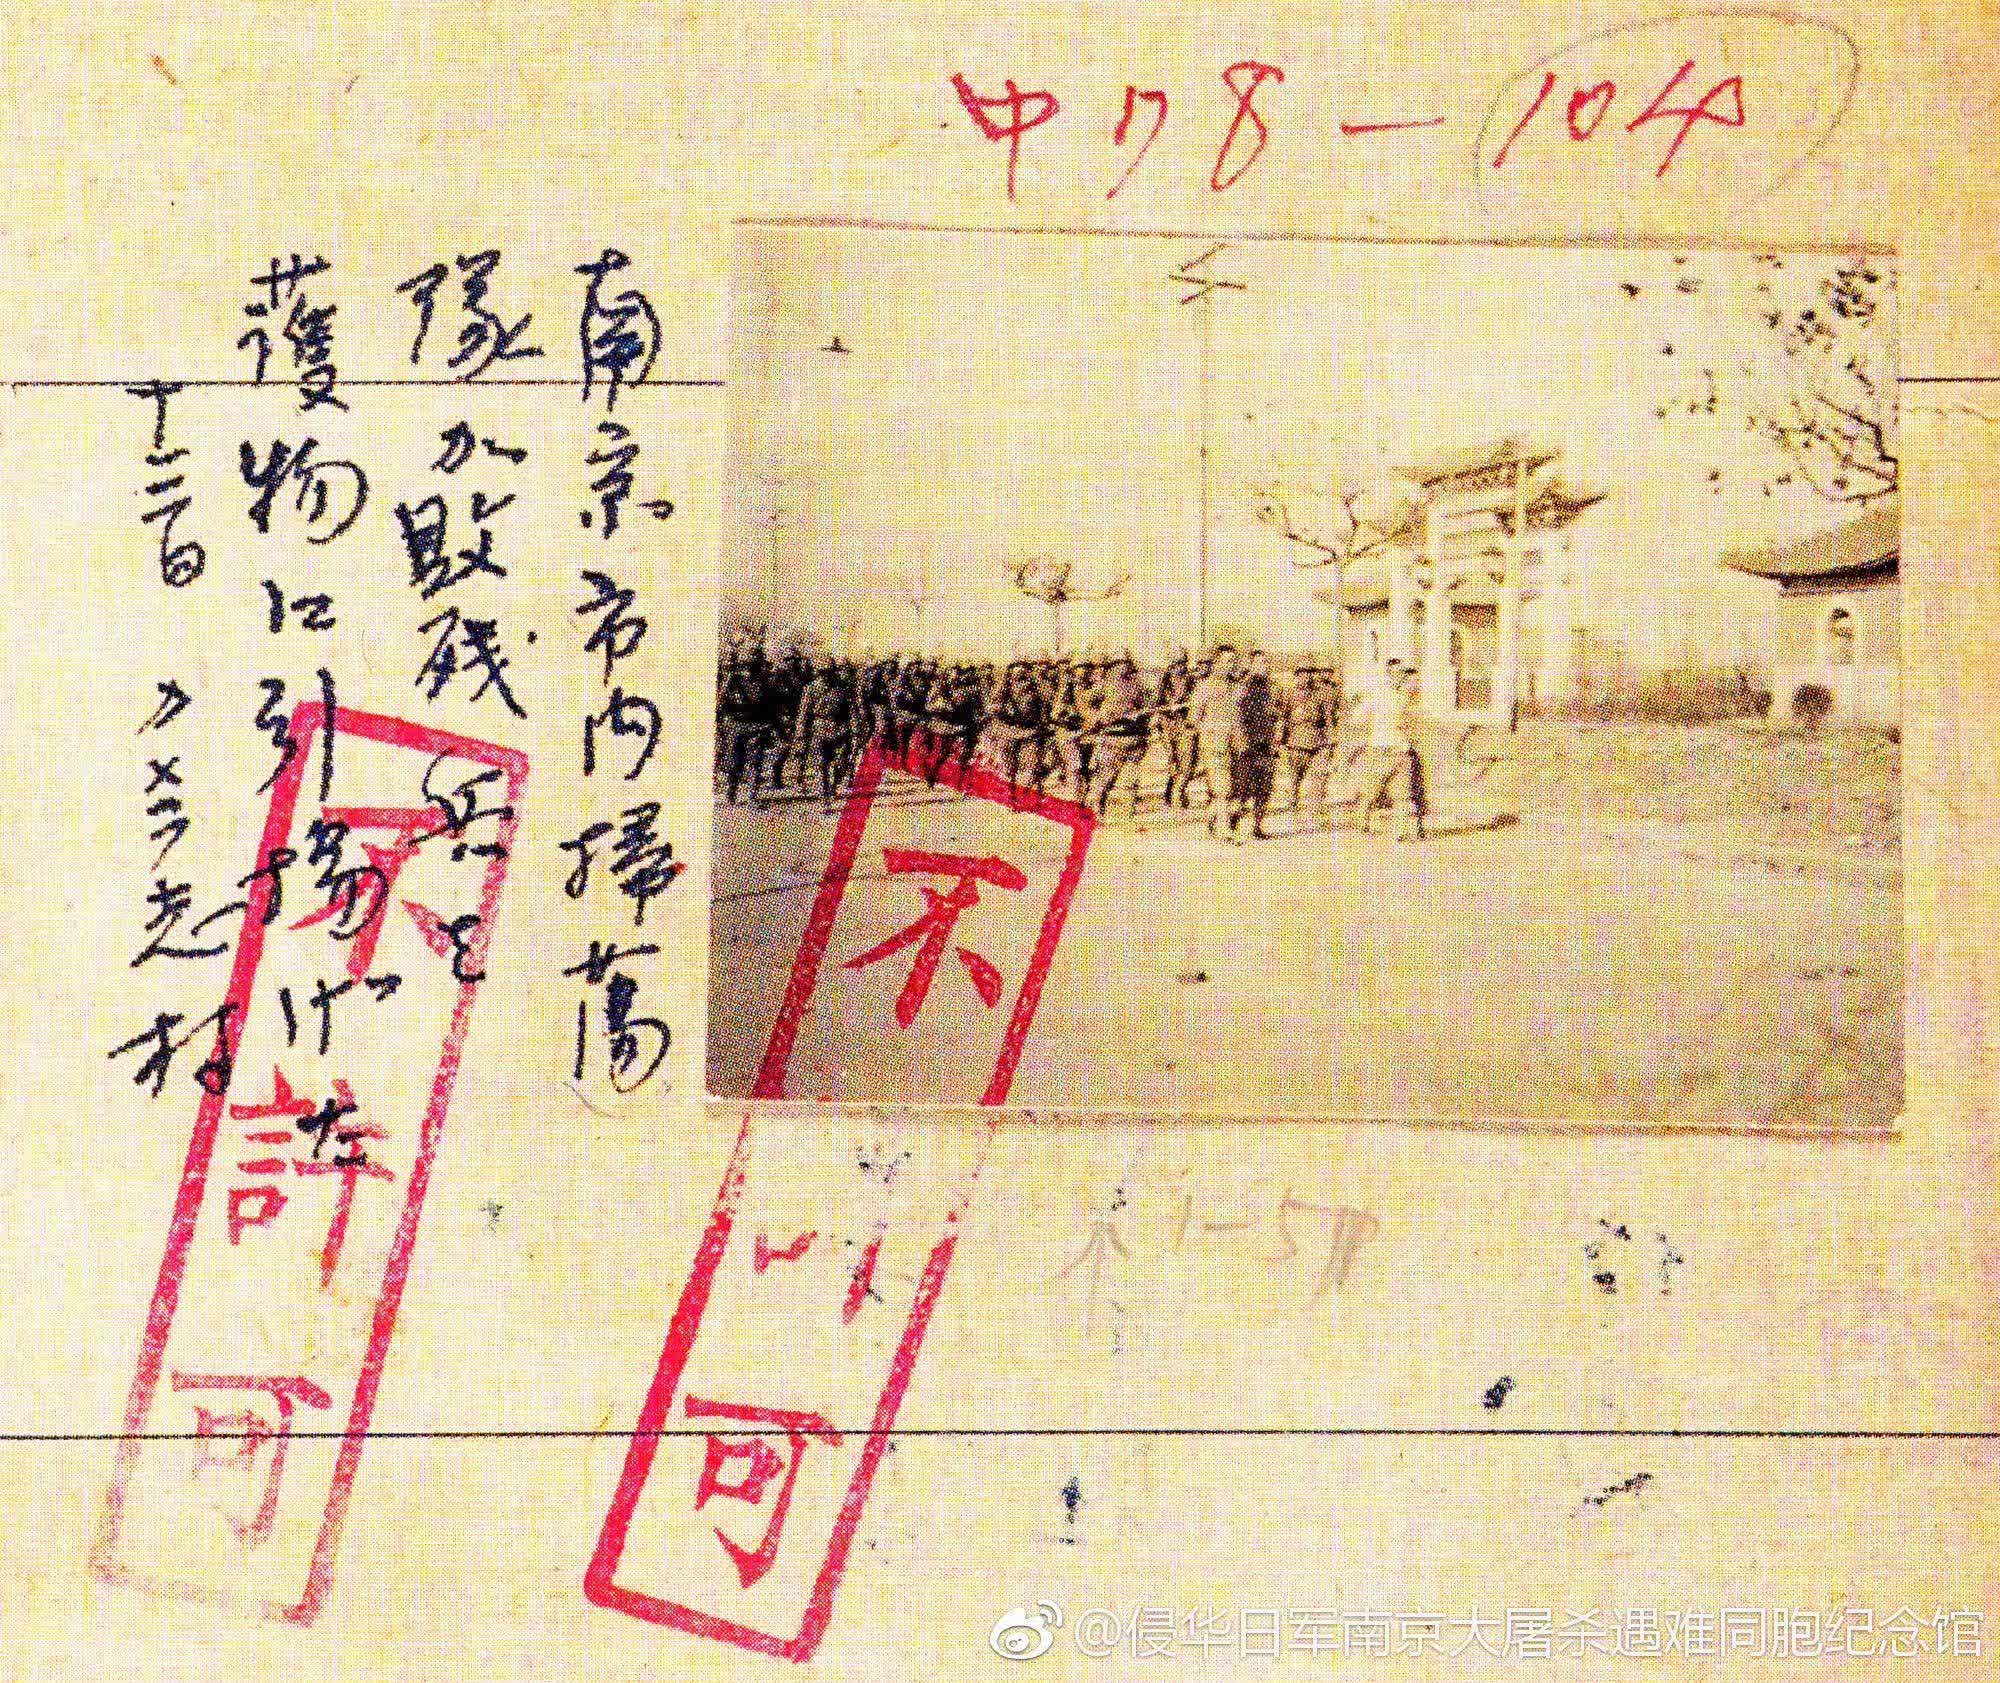 中178－104
南京市内掃蕩
隊が敗残兵を
獲物に引揚げた
十三日 カメラ志村
不許可
不許可
@侵华日军南京大屠杀遇难同胞纪念馆